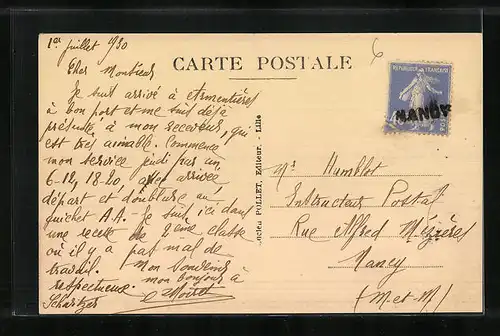 1er juillet 1930
CARTE POSTALE
6
RÉPUBLIQUE FRANÇAISE
NANCY
POSTES
Cher Monsieur
Je suis arrivé à Armentières
à bon port et me suis déjà
présenté à mon receveur, qui
est très aimable. Commence
mon service jeudi par un
6-12, 18-20, avec arrivée,
départ et doublure au
guichet A.A. - Je suis ici dans
une recette de 2ème classe
où il y a pas mal de
travail. Mon souvenir
respectueux. mon bonjour à
POLLET, Éditeur. - Lille
Mr Humblot
Instructeur Postal
Rue Alfred Mézières
Nancy
(M-et-M)